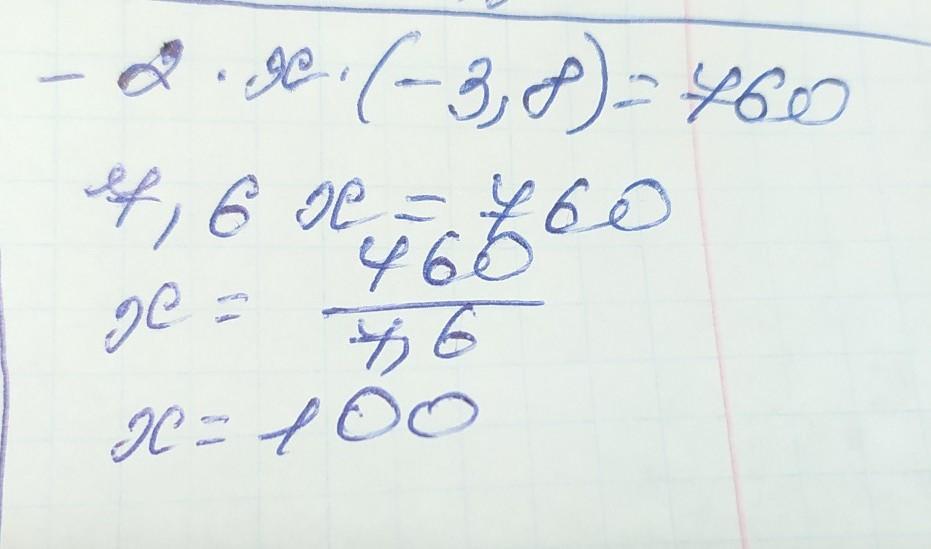 - 2 · x · (-3,8) = 760
7,6 x = 760
x = 760
7,6
x = 100